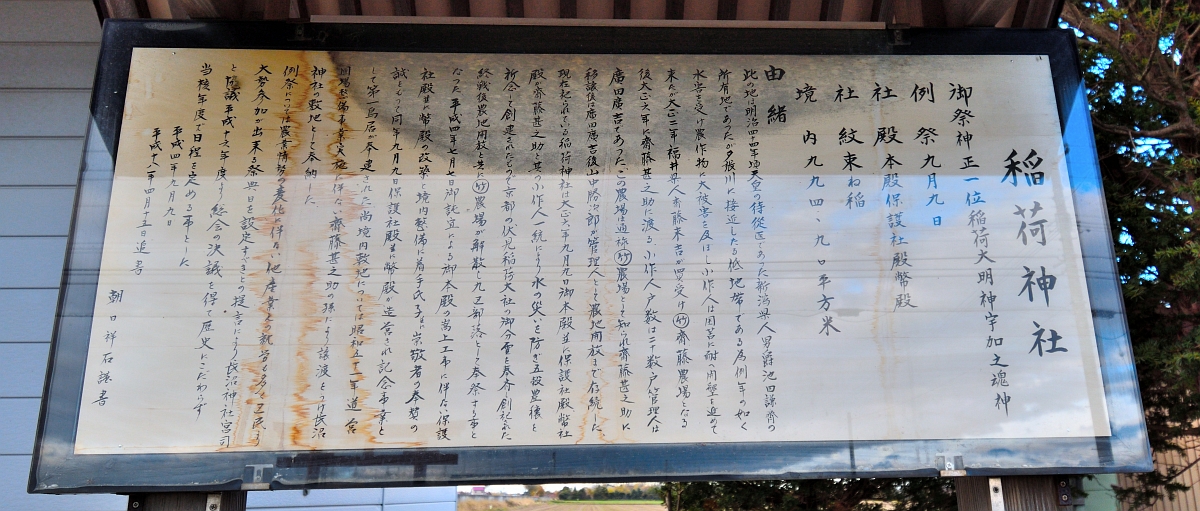 稲荷神社
御祭神 正一位稲荷大明神宇加之魂神
例祭 九月九日
社殿 本殿保護社殿幣殿
社紋 束ね稲
境内 九九四、九口平方米
由緒
此の地は明治四十年 天皇の侍従医であった新潟県人男爵池田謙斉の
所有地であったが夕張川に接近したる低地帯である為例年の如く
水害を受け農作物に大被害を及ぼし小作人は困苦に耐へ開墾を進めて
来たが大正三年福井県人斉藤末吉が買受け 竹 斉藤農場となる
後大正六年に斉藤甚之助に渡る小作人戸数は二十数戸管理人は
廣田廣吉であった、この農場は通称 竹 農場として知られ斉藤甚之助に
移譲後は廣田廣吉後山中勝治郎が管理人として農地開放まで存続した
現在祀られている稲荷神社は大正六年九月九日御本殿並に保護社殿幣社
殿が斉藤甚之助と其の小作人一統により水の災いを防ぎ五穀豊穣を
祈念して創建されたもので京都の伏見稲荷大社の御分霊を奉斉創祀された
終戦後農地開放と共に 竹 農場が解散し九区部落として奉祭する事と
なった 平成四年七月七日御託宣による御本殿の尚上工事に伴ない保護
社殿並に幣殿の改築と境内整備に着手氏子並に崇敬者の奉賛の
誠をもって同年九月九日保護社殿並に幣殿が造営され記念事業と
して第一鳥居が奉建された 尚境内敷地については昭和五十一年道営
圃場整備事業実施に伴ない斉藤甚之助の孫により譲渡をうけ長沼
神社の敷地として奉納した、
例祭については農業情勢の変化に伴ない他産業への就労も多く区民の
大勢参加が出来る祭典日を設定すべきとの提言により長沼神社宮司
と 平成十六年度より総会の決議を得て歴史にこだわらず
当該年度で日程を定める事とした
平成四年九月九日
平成十八年四月十五日追書
朝口祥石謹書